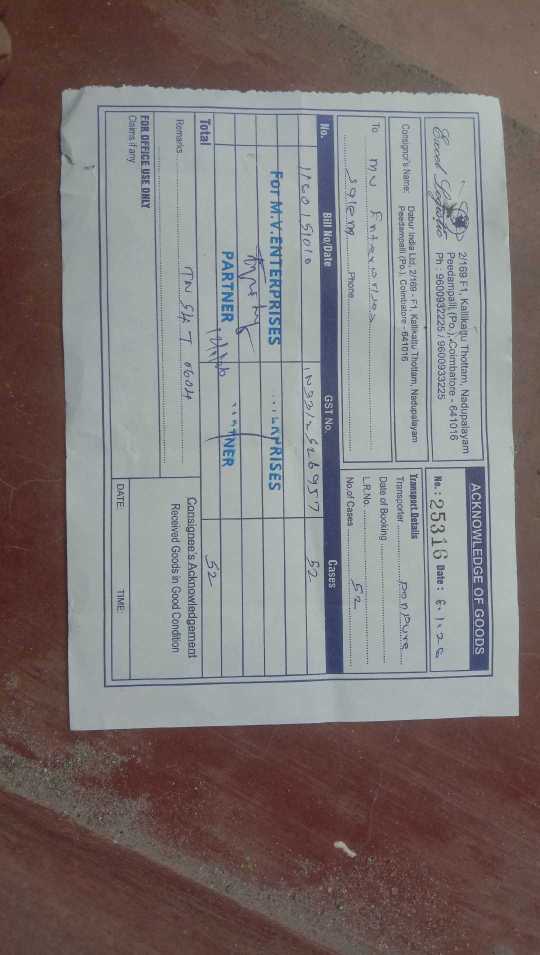 ACKNOWLEDGE OF GOODS
Excel Logistic
2/169 F1, Kallikattu Thottam, Nadupalayam
Peedampalli (Po.), Coimbatore - 641016
Ph : 9600932225 / 9600933225
No. : 25316 Date : 6.1.26
Consignor's Name: Dabur India Ltd. 2/169 - F1, Kallikattu Thottam, Nadupalayam
Peedampalli (Po.), Coimbatore - 641016
To MV Enterprises
Salem Phone
Transport Details
Transporter
Date of Booking
L.R.No.
No.of Cases 52
No. Bill No/Date GST No. Cases
52
For M.V.ENTERPRISES
RISES
PARTNER
NER
Total 52
Remarks TN 54 T 0604
Consignee's Acknowledgement
Received Goods in Good Condition
FOR OFFICE USE ONLY
Claims if any
DATE: TIME: